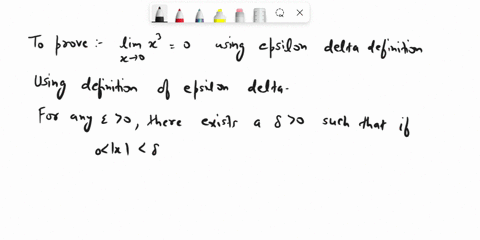 To prove :- lim x³ = 0 using epsilon delta definition
x→0
Using definition of epsilon delta.
For any ε > 0, there exists a δ > 0 such that if
0<|x| < δ